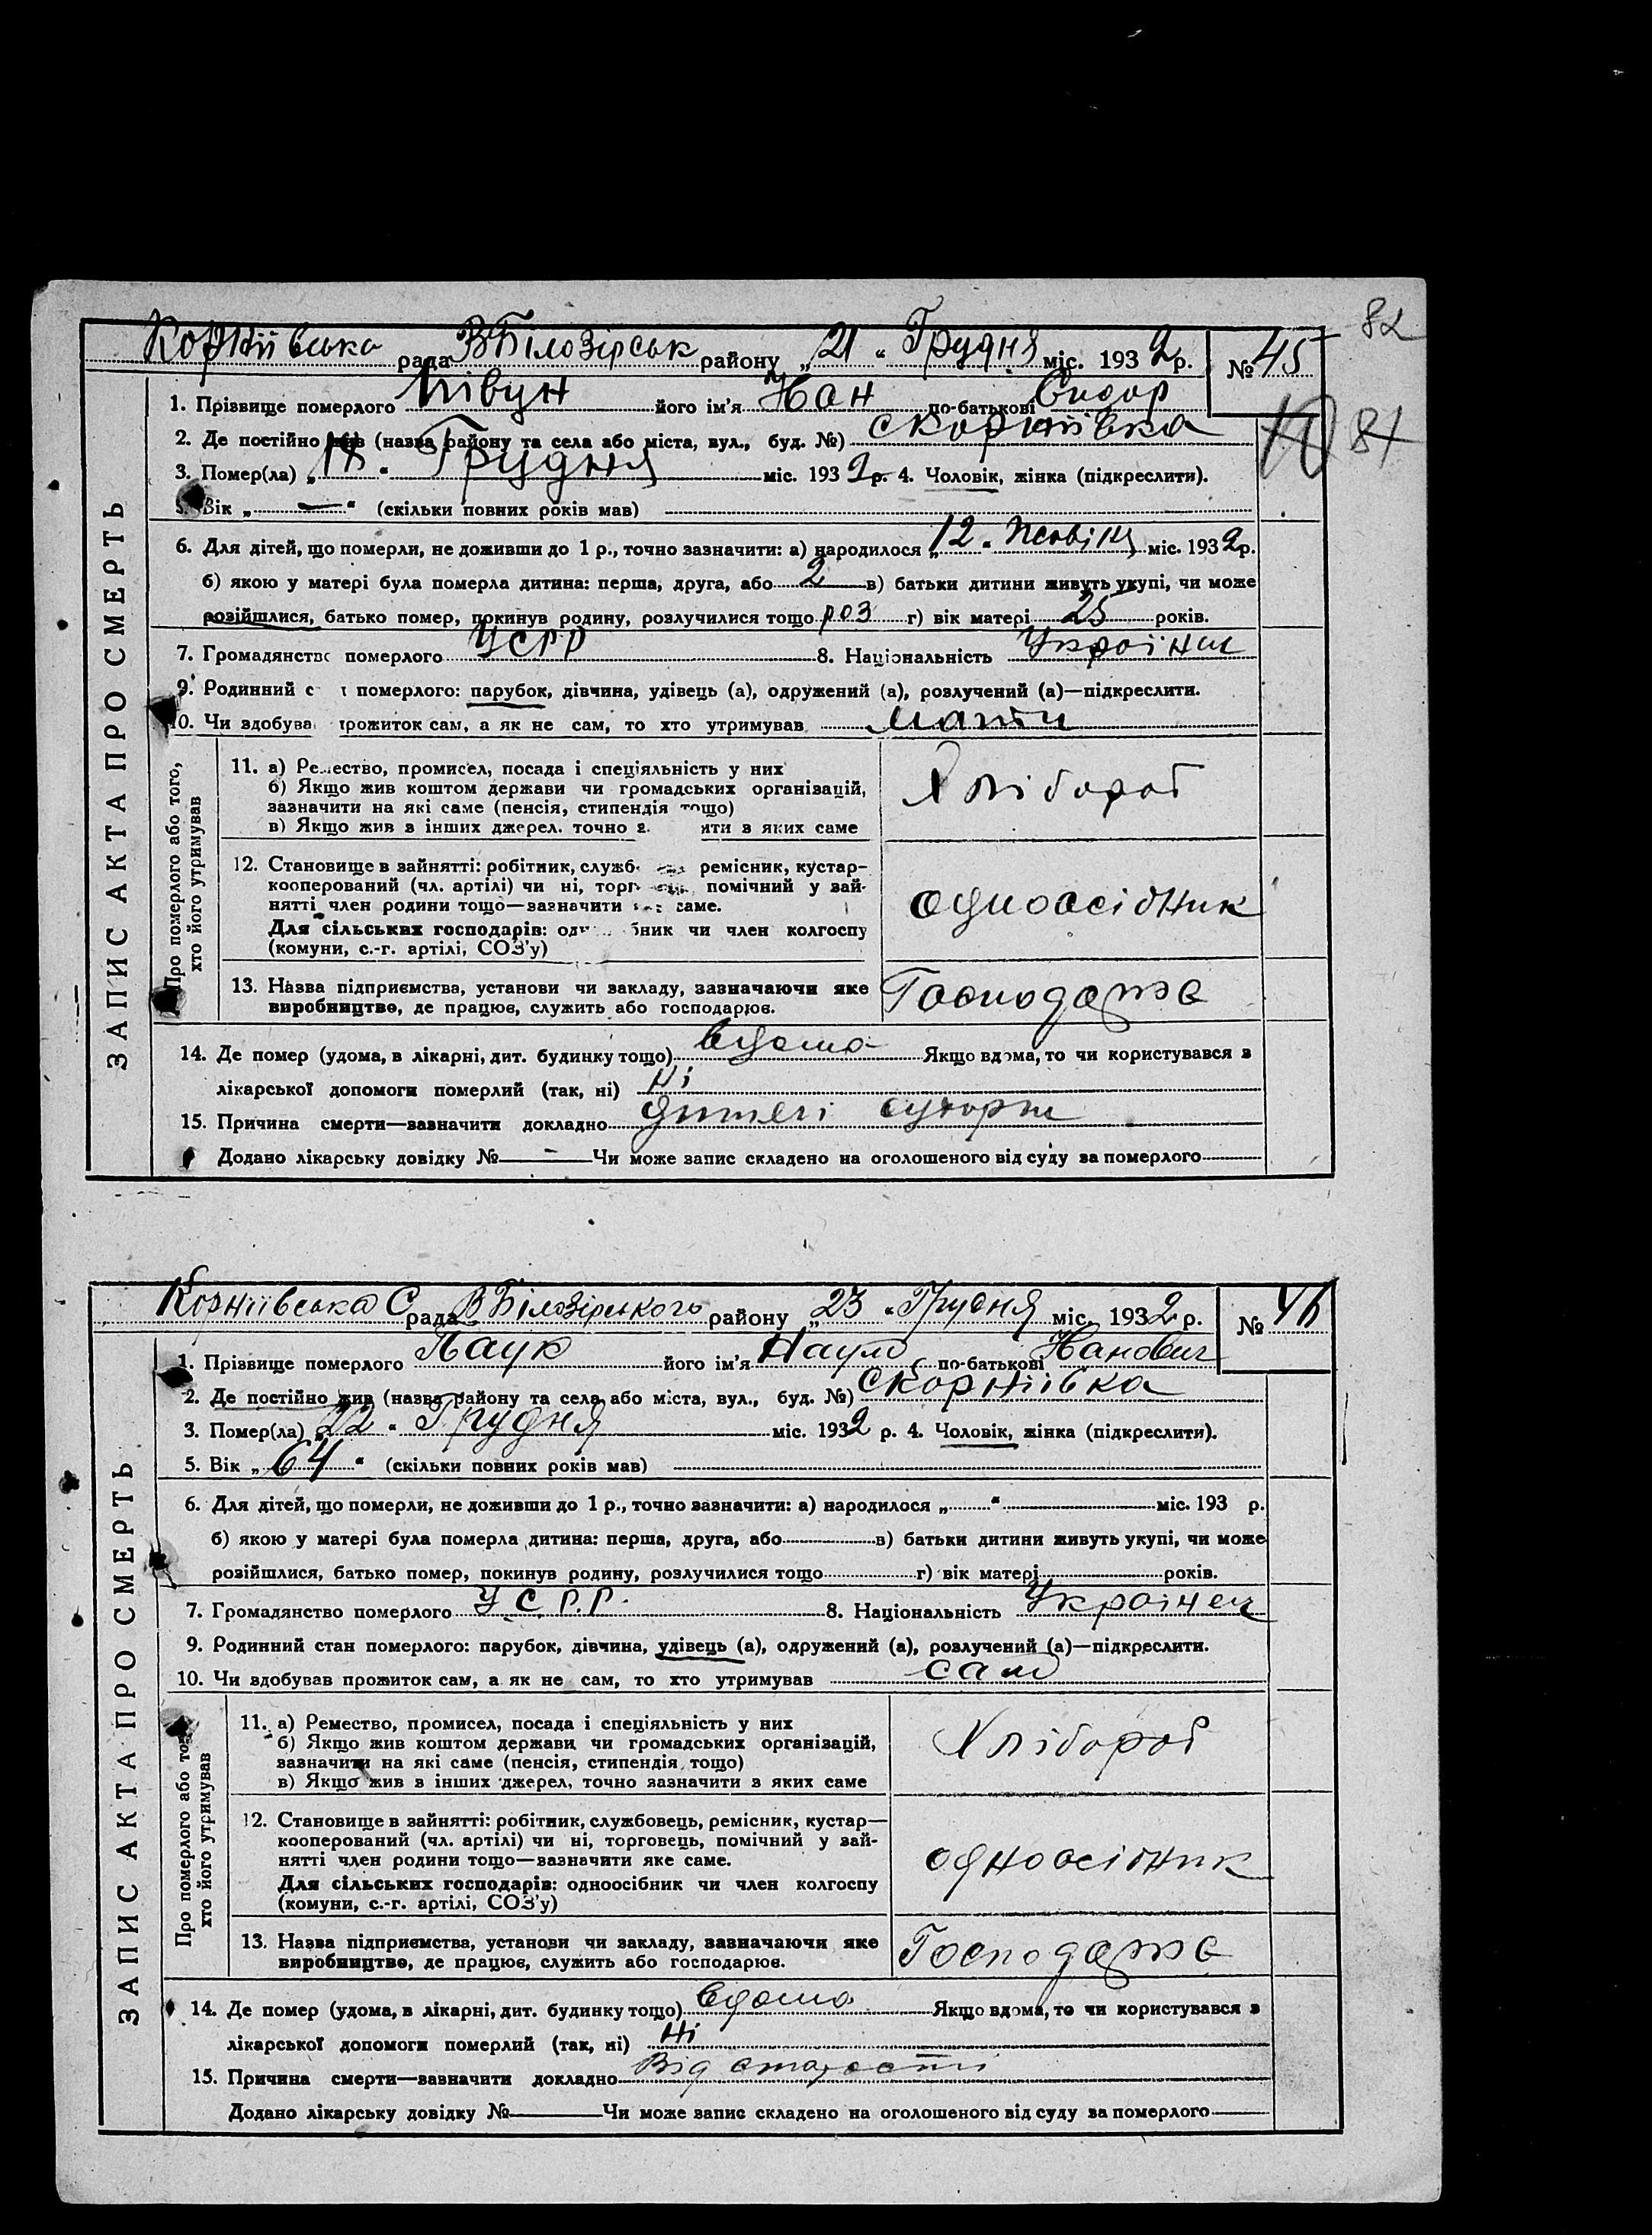 82
Корніївська рада В Білозірськ району „21“ Грудня міс. 1932 р. № 45
1. Прізвище померлого Півун його ім'я Іван по-батькові Сидор
2. Де постійно жив (назва району та села або міста, вул., буд. №) с Корніївка
81
3. Помер(ла) „ “ Грудня міс. 1932 р. 4. Чоловік, жінка (підкреслити).
5. Вік „—“ (скільки повних років мав)
6. Для дітей, що померли, не доживши до 1 р., точно зазначити: а) народилося „12“ міс. 1932 р.
б) якою у матері була померла дитина: перша, друга, або 2 в) батьки дитини живуть укупі, чи може
розійшлися, батько помер, покинув родину, розлучилися тощо роз г) вік матері 25 років.
7. Громадянство померлого УСРР 8. Національність Українец
9. Родинний с т померлого: парубок, дівчина, удівець (а), одружений (а), розлучений (а)—підкреслити.
10. Чи здобува прожиток сам, а як не сам, то хто утримував мати
ЗАПИС АКТА ПРО СМЕРТЬ
Про померлого або того, хто його утримував
11. а) Ремество, промисел, посада і спеціяльність у них
б) Якщо жив коштом держави чи громадських організацій,
зазначити на які саме (пенсія, стипендія тощо)
в) Якщо жив з інших джерел. точно з ити з яких саме
Хлібороб
12. Становище в зайнятті: робітник, служб ремісник, кустар—
кооперований (чл. артілі) чи ні, торг помічний у зай-
нятті член родини тощо—зазначити саме.
Для сільських господарів: од бник чи член колгоспу
(комуни, с.-г. артілі, СОЗ'у)
одноосібник
13. Назва підприємства, установи чи закладу, зазначаючи яке
виробництво, де працює, служить або господарює.
Господарка
14. Де помер (удома, в лікарні, дит. будинку тощо) вдома Якщо вдома, то чи користувався з
лікарської допомоги померлий (так, ні) Ні
15. Причина смерти—зазначити докладно дитячі
Додано лікарську довідку №— Чи може запис складено на оголошеного від суду за померлого
Корніївська С рада В Білозірського району „23“ Грудня міс. 1932 р. № 46
1. Прізвище померлого Паук його ім'я Наум по-батькові Іванович
2. Де постійно жив (назва району та села або міста, вул., буд. №) с Корніївка
3. Помер(ла) „22“ Грудня міс. 1932 р. 4. Чоловік, жінка (підкреслити).
5. Вік „64“ (скільки повних років мав)
6. Для дітей, що померли, не доживши до 1 р., точно зазначити: а) народилося „ “ міс. 193 р.
б) якою у матері була померла дитина: перша, друга, або в) батьки дитини живуть укупі, чи може
розійшлися, батько помер, покинув родину, розлучилися тощо г) вік матері років.
7. Громадянство померлого У.С.Р.Р. 8. Національність Українец
9. Родинний стан померлого: парубок, дівчина, удівець (а), одружений (а), розлучений (а)—підкреслити.
10. Чи здобував прожиток сам, а як не сам, то хто утримував сам
ЗАПИС АКТА ПРО СМЕРТЬ
Про померлого або того, хто його утримував
11. а) Ремество, промисел, посада і спеціяльність у них
б) Якщо жив коштом держави чи громадських організацій,
зазначити на які саме (пенсія, стипендія тощо)
в) Якщо жив з інших джерел, точно зазначити з яких саме
Хлібороб
12. Становище в зайнятті: робітник, службовець, ремісник, кустар—
кооперований (чл. артілі) чи ні, торговець, помічний у зай-
нятті член родини тощо—зазначити яке саме.
Для сільських господарів: одноосібник чи член колгоспу
(комуни, с.-г. артілі, СОЗ'у)
одноосібник
13. Назва підприємства, установи чи закладу, зазначаючи яке
виробництво, де працює, служить або господарює.
Господарка
14. Де помер (удома, в лікарні, дит. будинку тощо) вдома Якщо вдома, то чи користувався з
лікарської допомоги померлий (так, ні) Ні
15. Причина смерти—зазначити докладно Від старости
Додано лікарську довідку № Чи може запис складено на оголошеного від суду за померлого